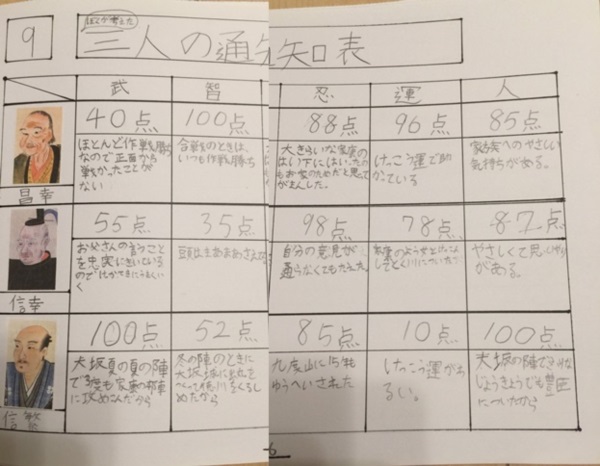 9
ぼくが考えた
三人の通知表
武
智
忍
運
人
40点
100点
88点
96点
85点
ほとんど作戦勝ち
なので正面から
戦かったことが
ない
合戦のときは、
いつも作戦勝ち
大きらいな家康の
はい下にはい
もお家のためだと思って
がまんした。
けっこう運で助
かっている
家族へのやさしい
気持ちがある。
昌幸
55点
35点
98点
78点
87点
お父さんの言うこと
を忠実にきいている
ので
自分の意見が
通らなくてもたえた
やさしくて思いやり
がある。
信幸
100点
52点
85点
10点
100点
大坂夏の夏の陣
で3度も家康の本陣
に攻めこんだから
冬の陣のときに
めたから
九度山に15年も
ゆうへいされた
けっこう運がわ
るい。
大坂の陣で
についたから
信繁
6